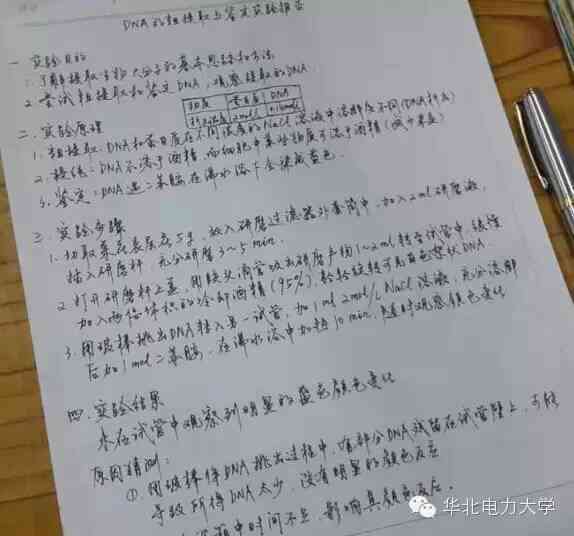 DNA的粗提取与鉴定实验报告
一. 实验目的
1. 了解提取生物大分子的基本思路和方法
2. 尝试粗提取和鉴定DNA，观察提取的DNA.
二. 实验原理
蛋白质 DNA
1. 粗提取: DNA和蛋白质在不同浓度的NaCl溶液中溶解度不同(DNA析出)
2. 提纯: DNA不溶于酒精，而细胞中某些物质可溶于酒精
3. 鉴定: DNA遇二苯胺在沸水浴下会染成蓝色.
三. 实验步骤
1. 切取菜花表层花5g, 放入研磨过滤器外套筒中, 加入2ml研磨液,
插入研磨杆, 充分研磨3~5min.
2. 打开研磨杆上盖, 用胶头滴管吸出研磨产物1~2ml转至试管中, 缓慢
加入两倍体积的冷却酒精(95%), 轻轻旋转可见白色絮状DNA.
3. 用玻棒挑出DNA转入另一试管, 加1ml 2mol/L NaCl溶液, 充分溶解
后加1ml二苯胺, 在沸水浴中加热10min, 随时观察颜色变化
四. 实验结果
未在试管中观察到明显的蓝色颜色变化
原因猜测:
① 用玻棒将DNA挑出过程中, 有部分DNA残留在试管壁上, 可能
导致所得DNA太少, 没有明显的颜色反应
浴中时间不足, 影响其颜色反应.
华北电力大学